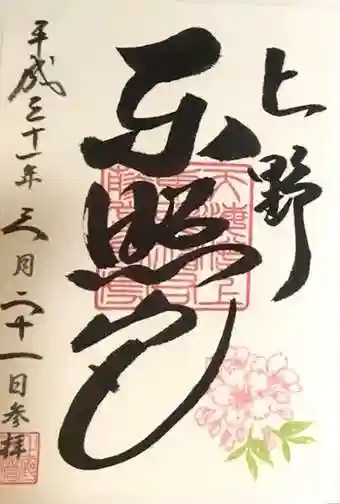 上野
东照宮
平成三十一年三月二十一日参拝